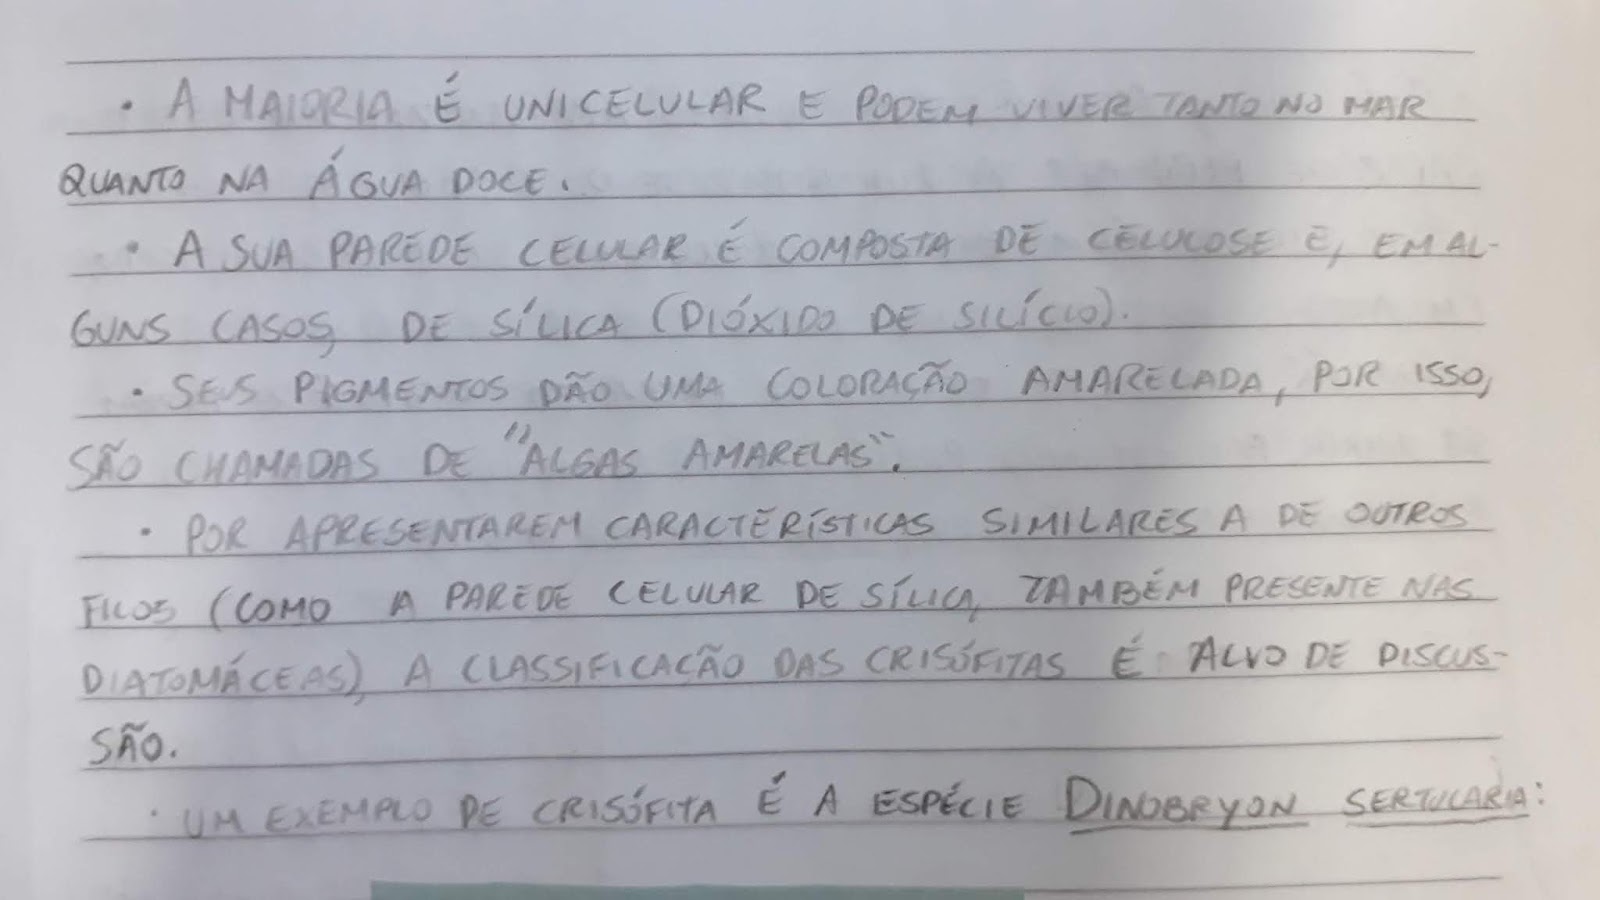 • A MAIORIA É UNICELULAR E PODEM VIVER TANTO NO MAR
QUANTO NA ÁGUA DOCE.
• A SUA PAREDE CELULAR É COMPOSTA DE CELULOSE E, EM AL-
GUNS CASOS, DE SÍLICA (DIÓXIDO DE SILÍCIO).
• SEUS PIGMENTOS DÃO UMA COLORAÇÃO AMARELADA, POR ISSO,
SÃO CHAMADAS DE "ALGAS AMARELAS".
• POR APRESENTAREM CARACTERÍSTICAS SIMILARES A DE OUTROS
FILOS (COMO A PAREDE CELULAR DE SÍLICA, TAMBÉM PRESENTE NAS
DIATOMÁCEAS), A CLASSIFICAÇÃO DAS CRISÓFITAS É ALVO DE DISCUS-
SÃO.
• UM EXEMPLO DE CRISÓFITA É A ESPÉCIE DINOBRYON SERTULARIA: